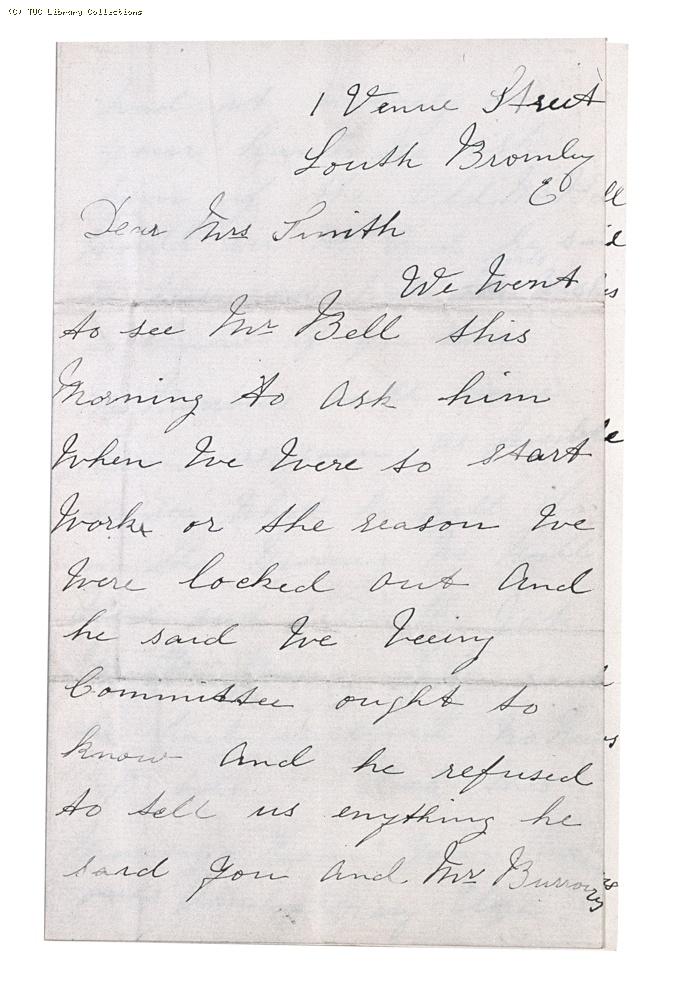 (C) TUC Library Collections
1 Venue Street
South Bromley
E
Dear Mrs Smith
We Went
to see Mr Bell this
Morning to ask him
When We Were to start
Work or the reason We
Were locked out And
he said We being
Committee ought to
know And he refused
to tell us enything he
said you and Mr Burrows